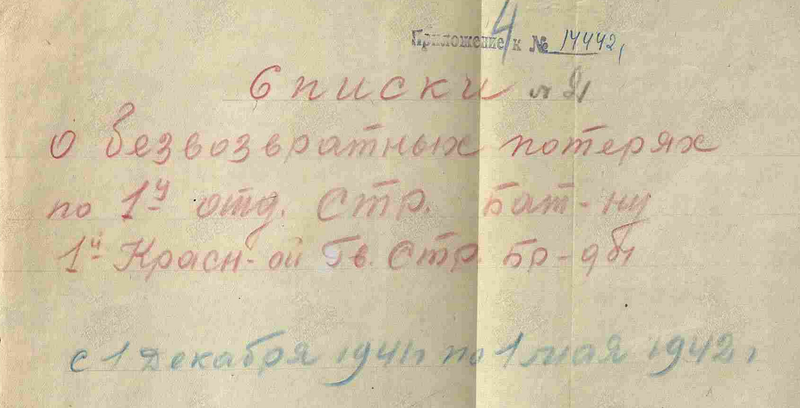 Приложение 4 к № 14442,
Списки № 21
о безвозвратных потерях
по 1му отд. Стр. Бат-ну
1й Красн-ой Гв. Стр. Бр-ды
с 1 Декабря 1941г по 1 мая 1942г